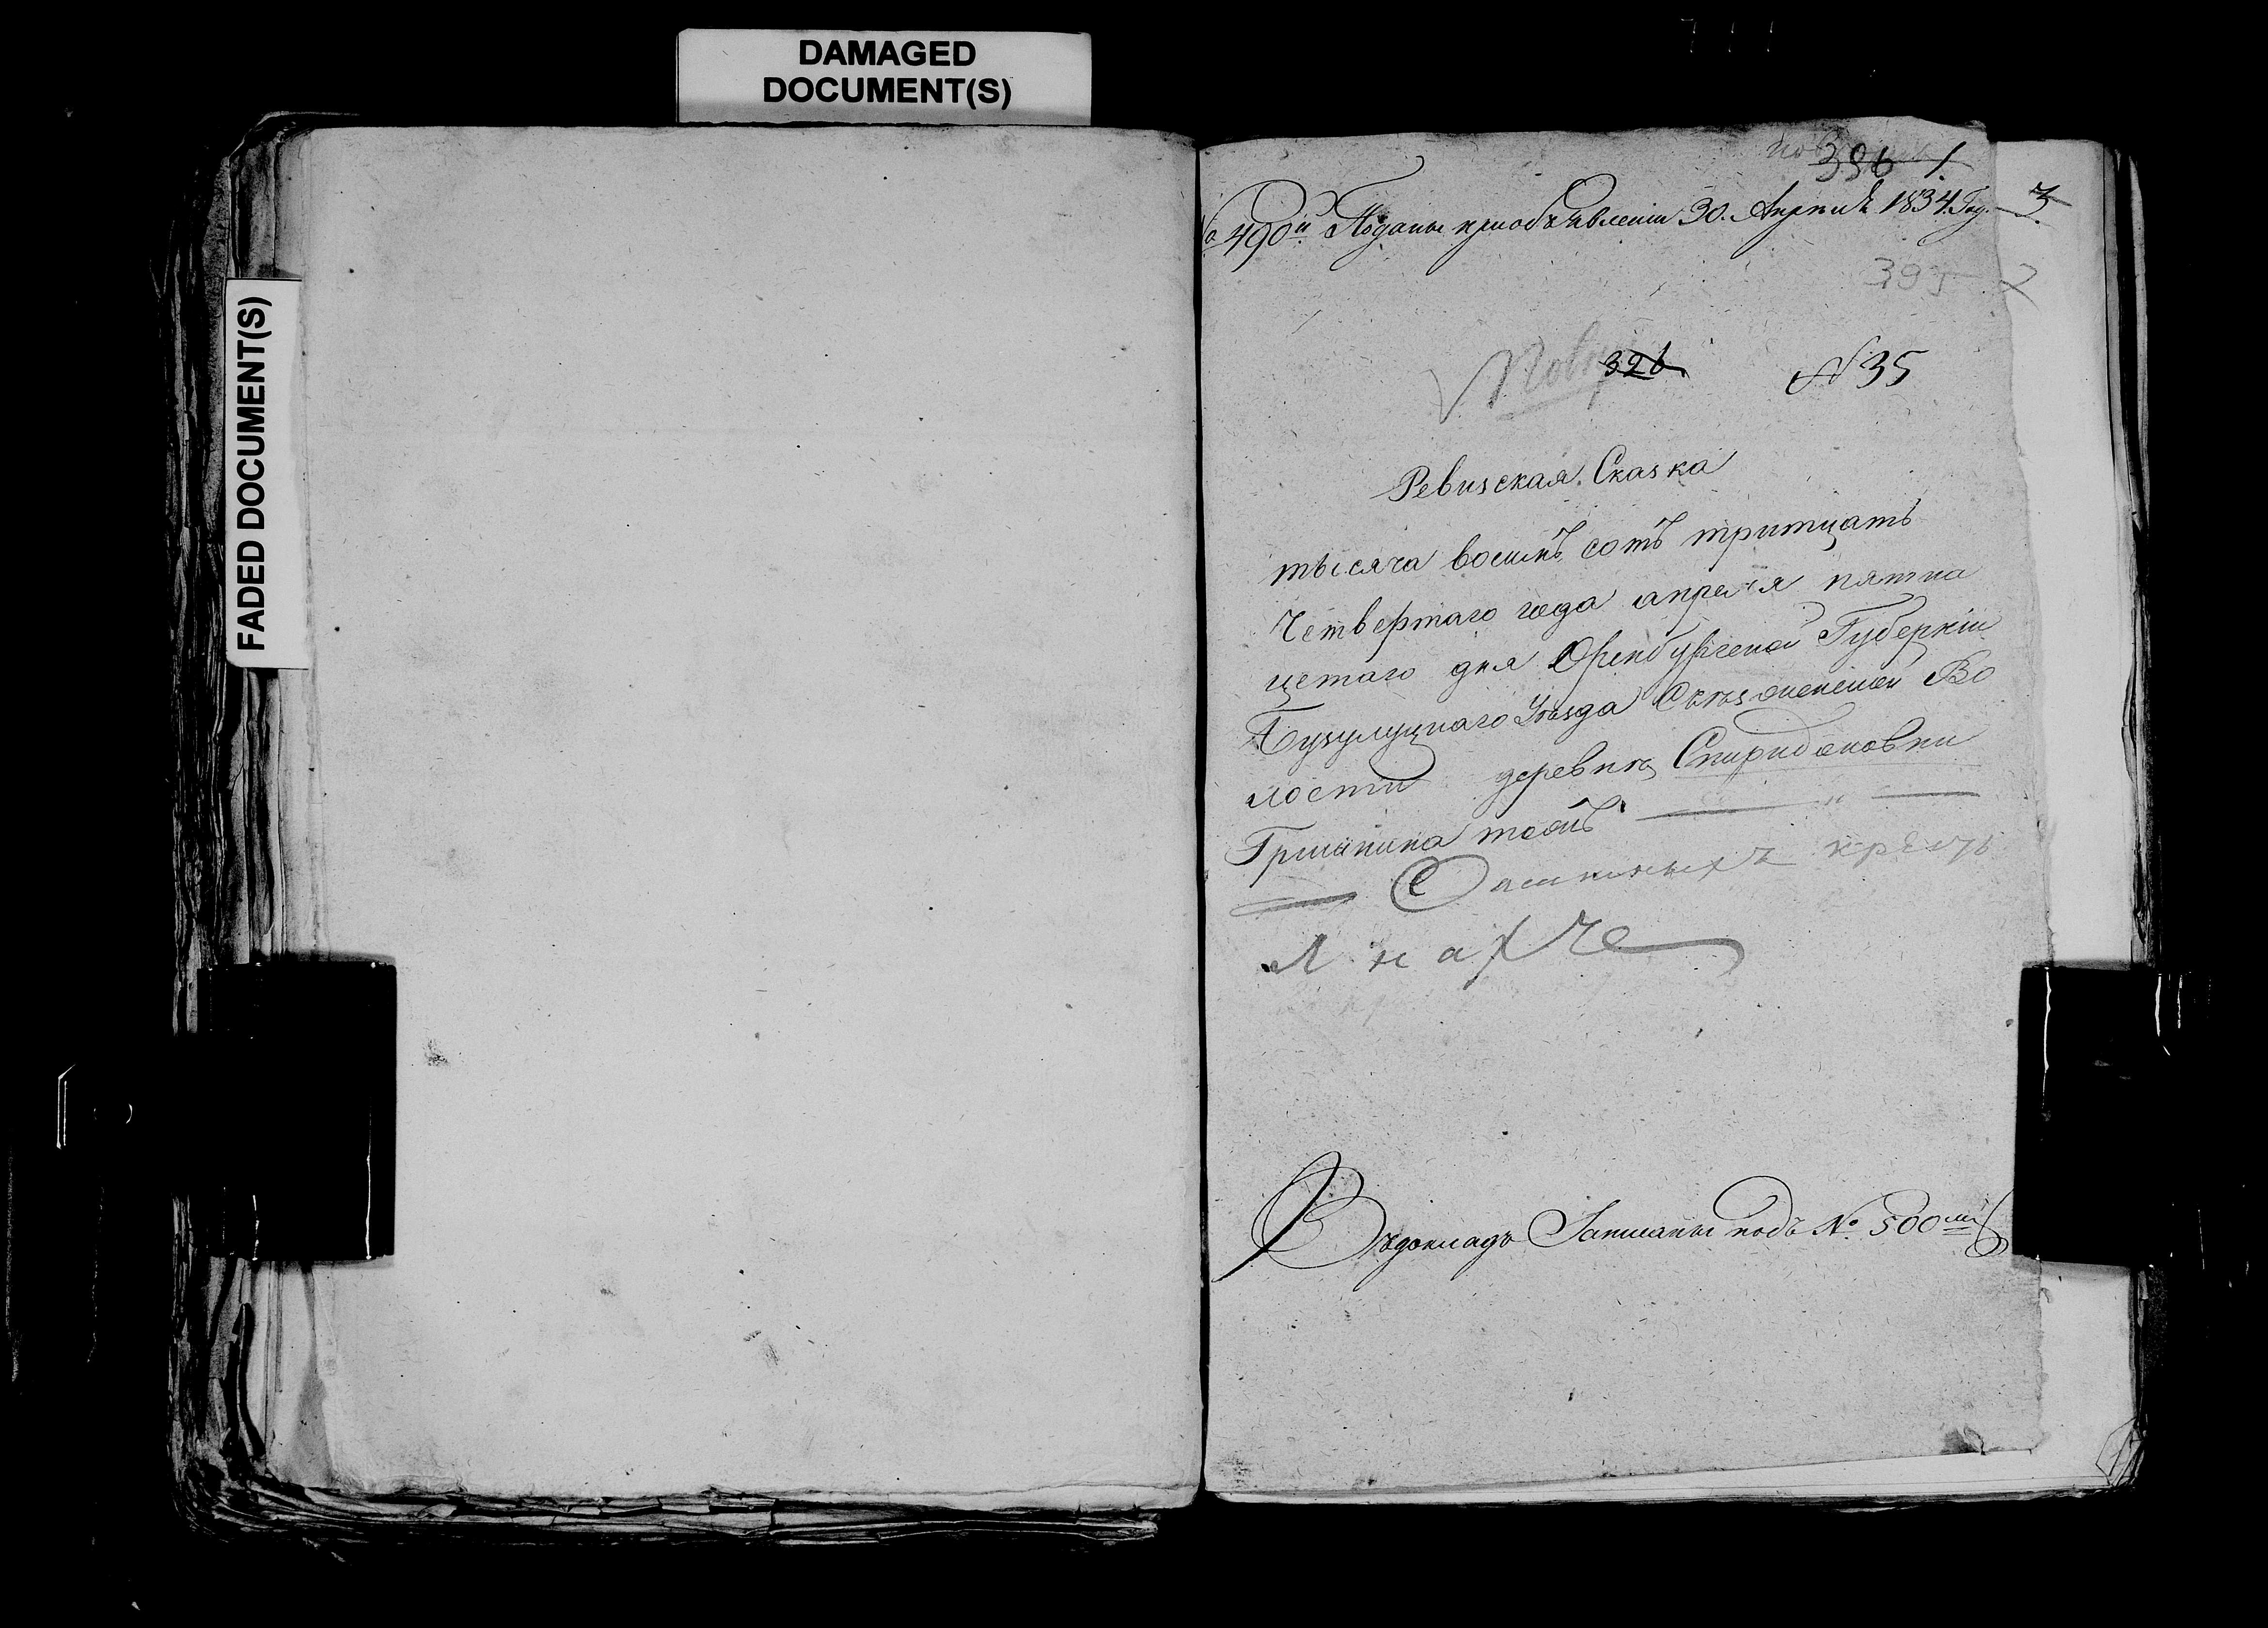 DAMAGED
DOCUMENT(S)
FADED DOCUMENT(S)
396 1
490й Поданы приобъявленіи 30. Апреля 1834. Год. 3
395 2
326 N 35
Ревизская Сказка
тысяча восимъ сотъ тритцать
Четвертаго года апреля пятна
цетаго дня Оренбургской Губерніи
Бузулуцкаго Уезда Съезженской Во
лости деревни Спиридоновки
тожъ
крестья
Записаны подъ №. 500мъ